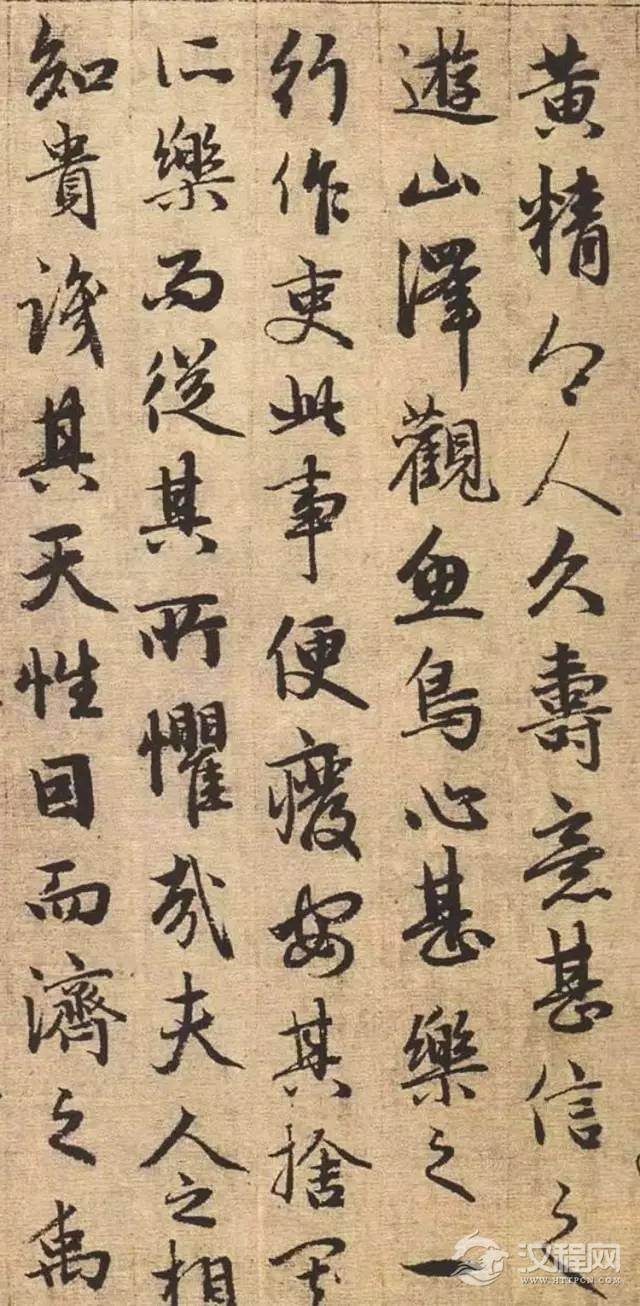 黄精令人久壽意甚信之
遊山澤觀魚鳥心甚樂之一
行作吏此事便癈安其捨其
所樂而從其所懼哉夫人之相
知貴識其天性因而濟之禹
汉程网
WWW.HTTPCN.COM